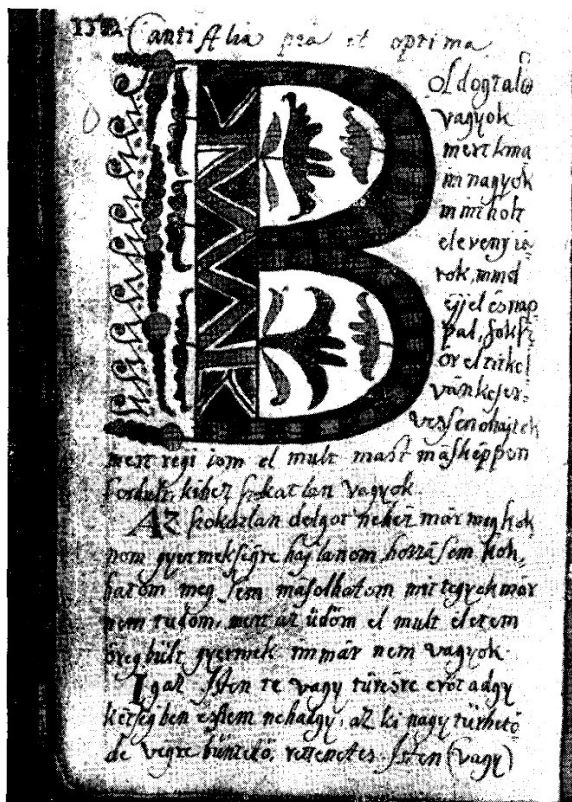 Canti Alia pra et optima
B
oldogtalā
vagyok
mert kma
im nagyok
mint holt
eleveny ia
rok, mind
éjjel és nap
pal, sokſz
or el titkol
ván keſer,
veſsen ohajtek
mert regi iom el mult mast maſképpen
fordult, kihez ſzokatlan vagyok.
AZ ſzokatlan dolgot nehez már megſzok
nom gyermekſégre hajlanom, hozzá ſem
hatom meg ſem máſolhatom mit tegyek már
nem tudom, mert az üdöm el mult eletem
öregbült gyermek immár nem vagyok.
Igaz Iſten te vagy türésre eröt adgy
kétſégben eſnem ne hadgy, az ki nagy türhetö
de vegre büntetö, rettenetes Iſten (vagy)